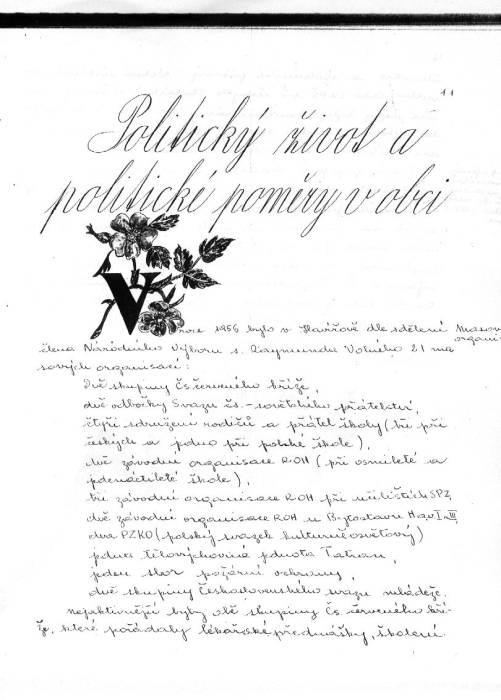 11
Politický život a
politické poměry v obci
V roce 1956 bylo v Havířově dle sdělení
Masov
organi
člena Národního Výboru s. Raymunda Volného 21 ma
sových organisací:
Dvě skupiny Čs. červeného kříže,
dvě odbočky Svazu čs.-sovětského přátelství,
čtyři sdružení rodičů a přátel školy (tři při
českých a jedno při polské škole),
dvě závodní organisace ROH (při osmileté a
jedenáctileté škole),
tři závodní organisace ROH při učilištích SPZ,
dvě závodní organisace ROH u Bytostavu Hav I a III,
dva PZKO (polský svazek kulturně osvětový)
jednu tělovýchovná jednota Tatran,
jeden sbor požární ochrany,
dvě skupiny Československého svazu mládeže.
Nejaktivnější byly obě skupiny Čs. červeného kří-
že, které pořádaly lékařské přednášky, školení